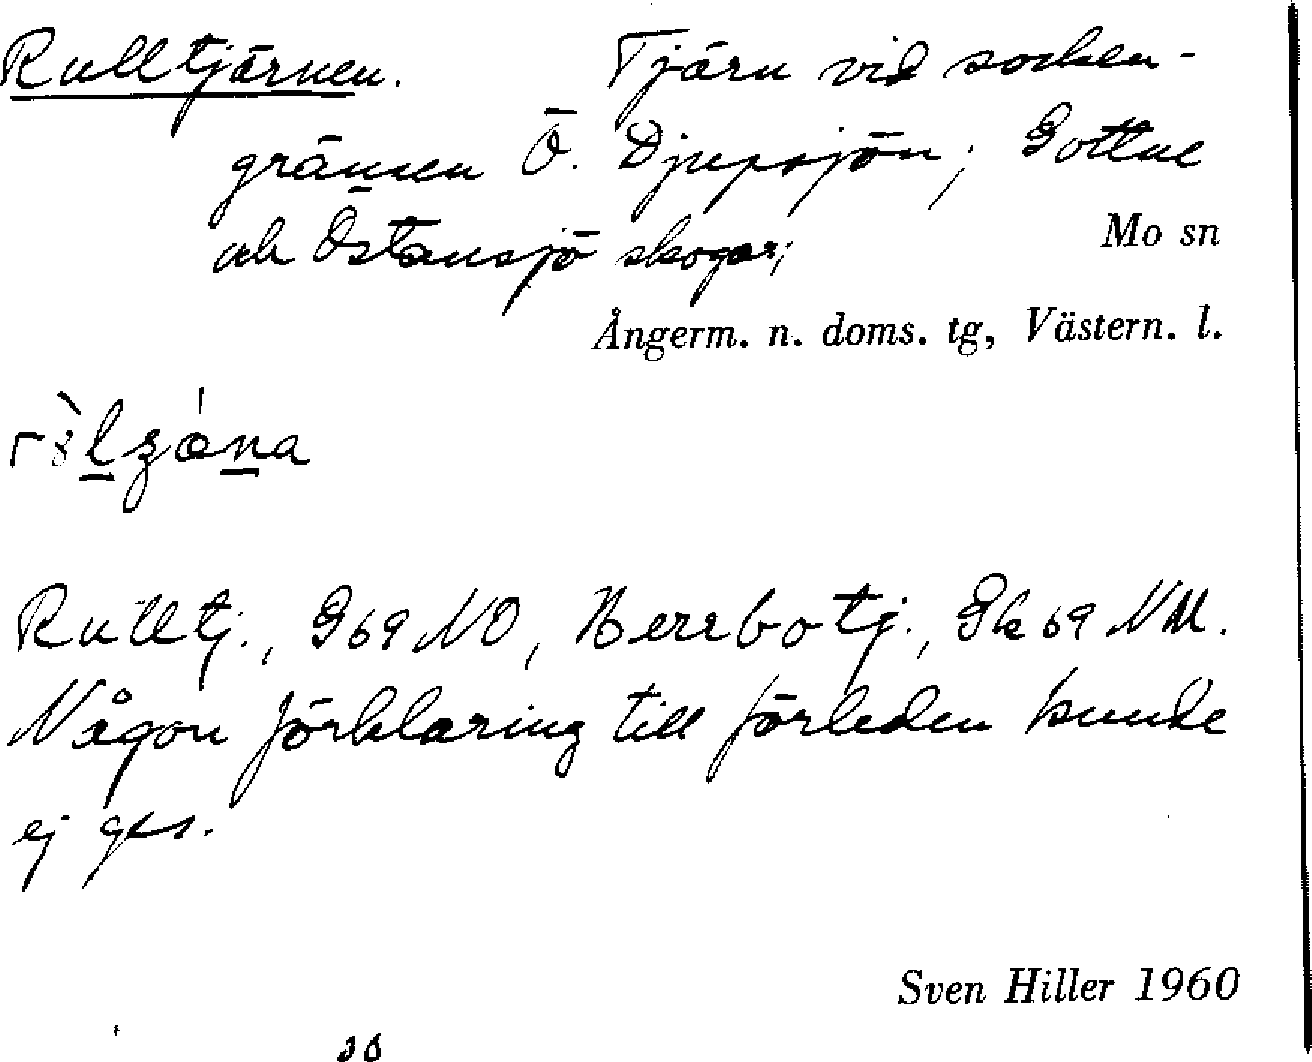 Rulltjärnen. Tjärn vid socken-
gränsen Ö. Djupsjön; Gottne
och Östansjö skogar;
Mo sn
Ångerm. n. doms. tg, Västern. l.
Rulltj., G69 NO, Herrbotj., Gk69 NM.
Någon förklaring till förleden kunde
ej ges.
Sven Hiller 1960